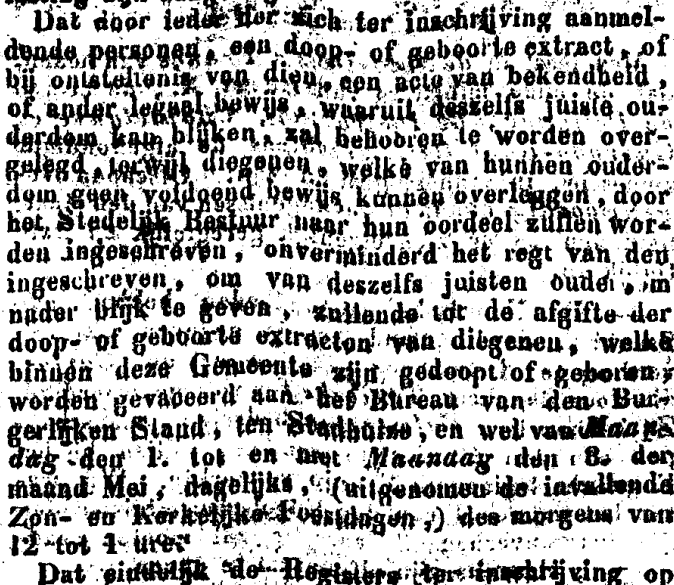 Dat door ieder der zich ter inschrijving aanmel-
dende personen, een doop- of geboorte extract, of
bij ontstentenis van dien, een acte van bekendheid,
of ander legaal bewijs, waaruit deszelfs juiste ou-
derdom kan blijken, zal behooren te worden over-
gelegd, terwijl diegenen, welke van hunnen ouder-
dom geen voldoend bewijs kunnen overleggen, door
het Stedelijk Bestuur naar hun oordeel zullen wor-
den ingeschreven, onverminderd het regt van den
ingeschreven, om van deszelfs juisten ouder
nader blijk te geven, zullende tot de afgifte der
doop- of geboorte extracten van diegenen, welke
binnen deze Gemeente zijn gedoopt of geboren,
worden gevaceerd aan het Bureau van den Bur-
gerlijken Stand, ten Stadhuize, en wel van Maan-
dag den 1. tot en met Maandag den 8. der
maand Mei, dagelijks, (uitgenomen de invallende
Zon- en Kerkelijke Feestdagen,) des morgens van
12 tot 1 ure.
Dat eindelijk de Registers ter inschrijving op